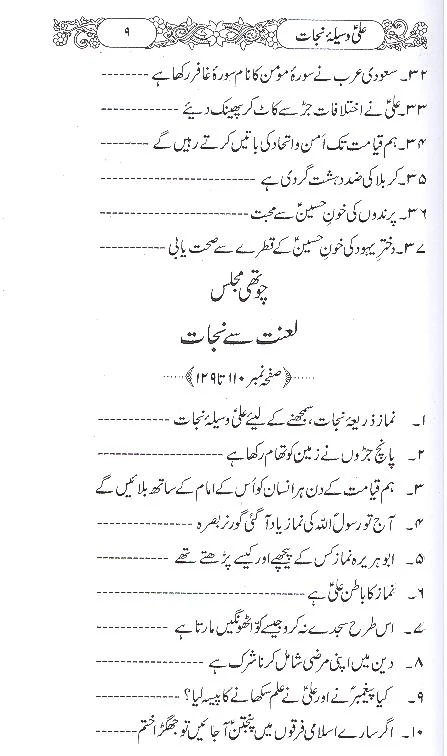 علیؑ وسیلۂ نجات ۹
۳۲۔ سعودی عرب نے سورۂ مؤمن کا نام سورۂ غافر رکھا ہے ---------
۳۳۔ علیؑ نے اختلافات جڑ سے کاٹ کر پھینک دیئے ---------
۳۴۔ ہم قیامت تک امن و اتحاد کی باتیں کرتے رہیں گے ---------
۳۵۔ کربلا کی ضد دہشت گردی ہے ---------
۳۶۔ پرندوں کی خونِ حسینؑ سے محبت ---------
۳۷۔ دخترِ یہود کی خونِ حسینؑ کے قطرے سے صحت یابی ---------
چوتھی مجلس
لعنت سے نجات
.....﴿صفحہ نمبر ۱۱۰ تا ۱۲۹﴾.....
۱۔ نماز ذریعۂ نجات، سمجھنے کے لیئے علیؑ وسیلۂ نجات ---------
۲۔ پانچ جڑوں نے زمین کو تھام رکھا ہے ---------
۳۔ ہم قیامت کے دن ہر انسان کو اُس کے امام کے ساتھ بلائیں گے
۴۔ آج تو رسولؐ اللہ کی نماز یاد آ گئی گورنر بصرہ ---------
۵۔ ابو ہریرہ نماز کس کے پیچھے اور کیسے پڑھتے تھے ---------
۶۔ نماز کا باطن علیؑ ہے ---------
۷۔ اس طرح سجدے نہ کرو جیسے کوّا ٹھونگیں مارتا ہے ---------
۸۔ دین میں اپنی مرضی شامل کرنا شرک ہے ---------
۹۔ کیا پیغمبرؐ نے اور علیؑ نے علم سکھانے کا پیسہ لیا؟ ---------
۱۰۔ اگر سارے اسلامی فرقوں میں پنجتنؑ آ جائیں تو جھگڑا ختم ---------